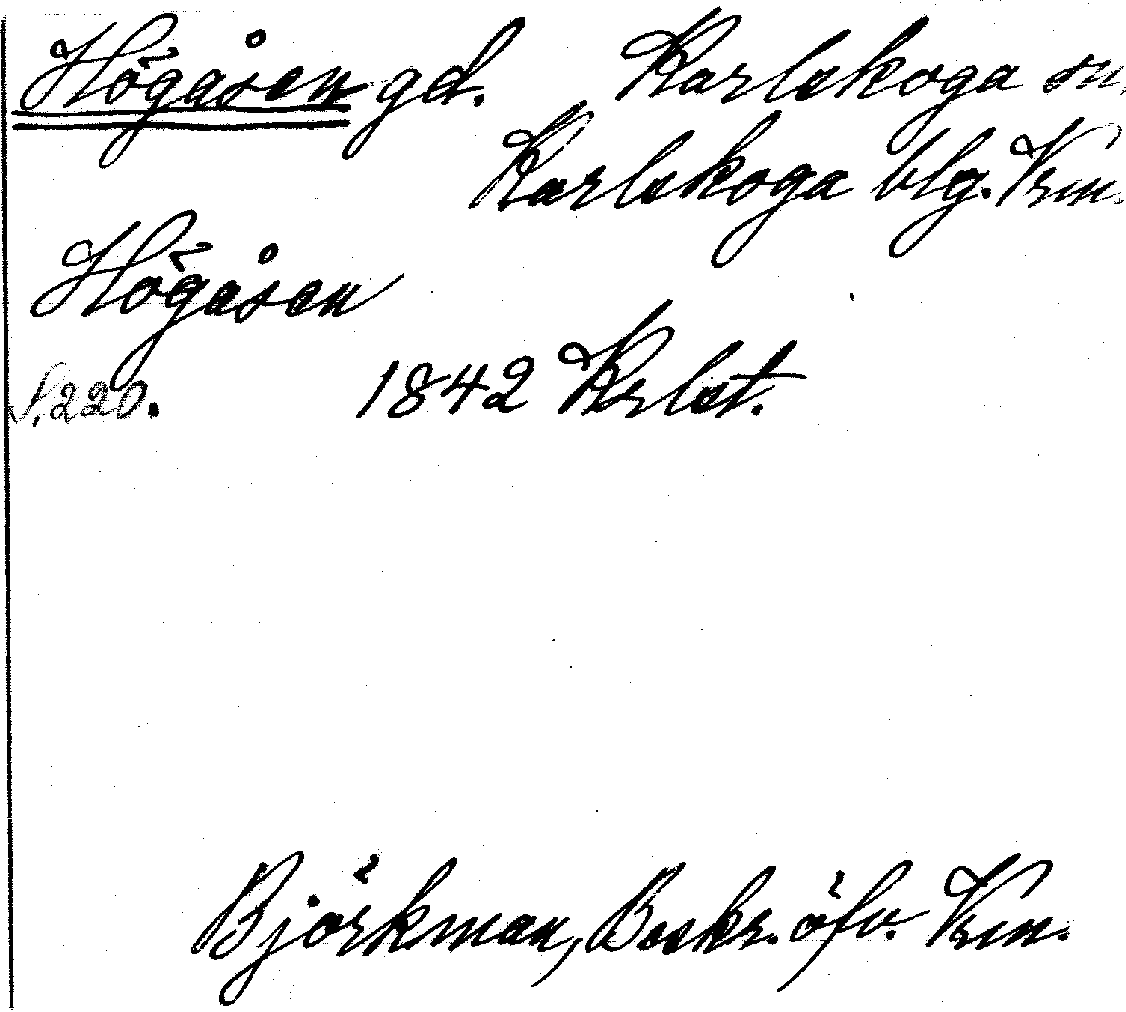 Högåsen gd. Karlskoga sn.
Karlskoga blg. Vrm.
Högåsen
S. 220. 1842 Krlst.
Björkman, Beskr. öfv. Vrm.